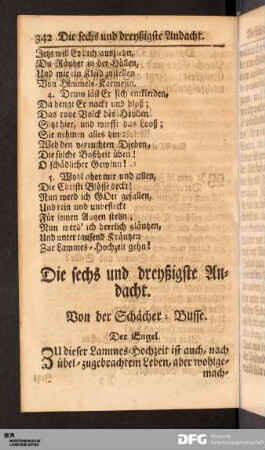 342 Die sechs und dreyßigste Andacht.
Jetzt will Er sich ausziehn,
Du Räuber in der Höllen,
Und mir ein Kleid zustellen
Von Himmels-Karmesin.
4. Drum läst Er sich entkleiden,
Da hengt Er nackt und bloß;
Das rohe Volck der Heyden
Sitzt hier, und wirfft das Looß;
Sie nehmen alles hin
Weh den verruchten Dieben,
Die solche Boßheit üben!
O schädlicher Gewinn!
5. Wohl aber mir und allen,
Die Christi Blösse deckt!
Nun werd ich GOtt gefallen,
Und rein und unbefleckt
Für seinen Augen stehn;
Nun werd' ich herrlich gläntzen,
Und unter tausend Kräntzen
Zur Lammes-Hochzeit gehn!
Die sechs und dreyßigste An-
dacht.
Von der Schächer-Busse.
Der Engel.
ZU dieser Lammes-Hochzeit ist auch, nach
übel-zugebrachtem Leben, aber wohlge-
mach-
DFG